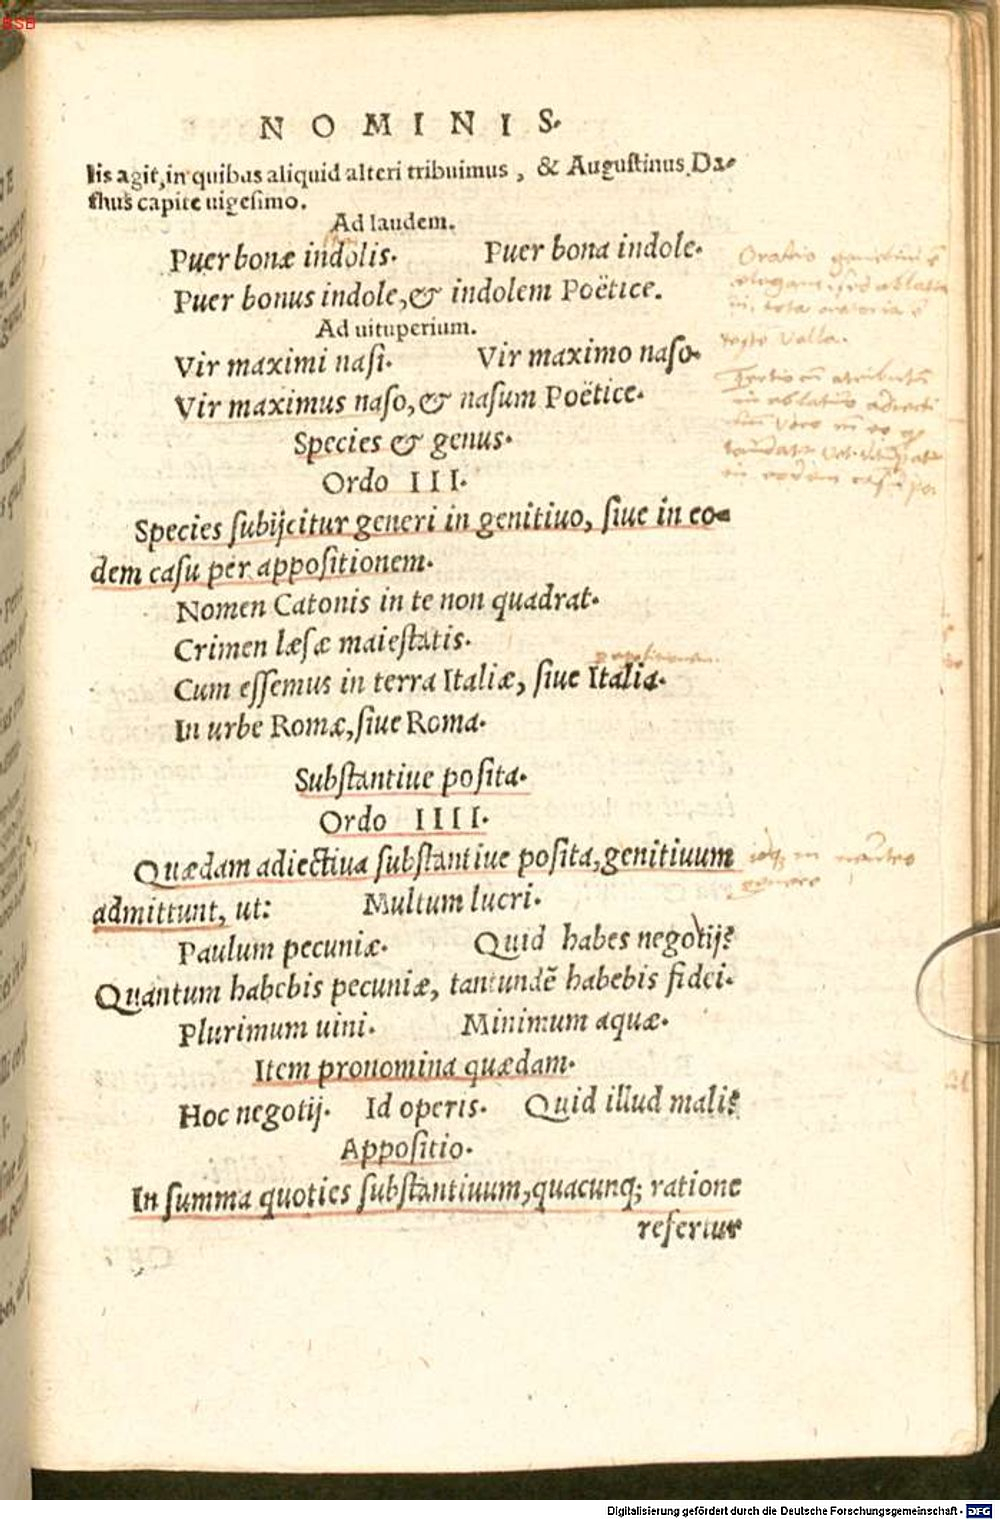 BSB
NOMINIS.
lis agit, in quibus aliquid alteri tribuimus, & Augustinus Da-
thus capite uigesimo.
Ad laudem.
Puer bonæ indolis. Puer bona indole.
Puer bonus indole, & indolem Poëtice.
Ad uituperium.
Vir maximi nasi. Vir maximo naso.
Vir maximus naso, & nasum Poëtice.
Species & genus.
Ordo III.
Species subijcitur generi in genitiuo, siue in eo-
dem casu per appositionem.
Nomen Catonis in te non quadrat.
Crimen læsæ maiestatis.
Cum essemus in terra Italiæ, siue Italia.
In urbe Romæ, siue Roma.
Substantiue posita.
Ordo IIII.
Quædam adiectiua substantiue posita, genitiuum
admittunt, ut: Multum lucri.
Paulum pecuniæ. Quid habes negotij?
Quantum habebis pecuniæ, tantundē habebis fidei.
Plurimum uini. Minimum aquæ.
Item pronomina quædam.
Hoc negotij. Id operis. Quid illud mali?
Appositio.
In summa quoties substantiuum, quacunq; ratione
refertur
Oratio genitiui
oratoria
Valla.
in ablatiuo
genere
Digitalisierung gefördert durch die Deutsche Forschungsgemeinschaft - DFG